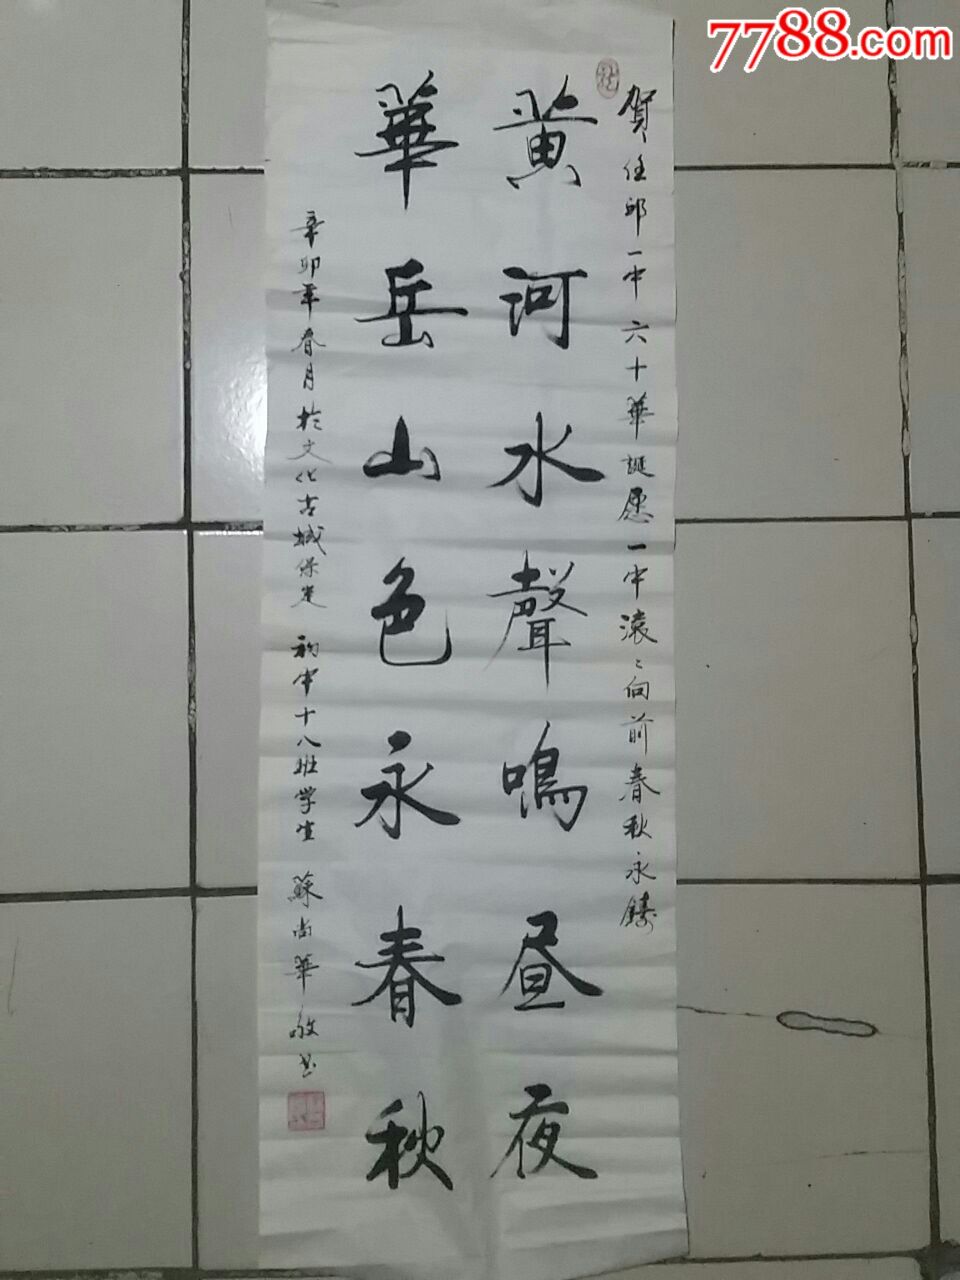 7788.com
賀任邱一中六十華誕愿一中滚〻向前春秋永鑄
黄河水聲鳴昼夜
華岳山色永春秋
辛卯年春月於文化古城保定 初中十八班学生 蘇尚華敬书